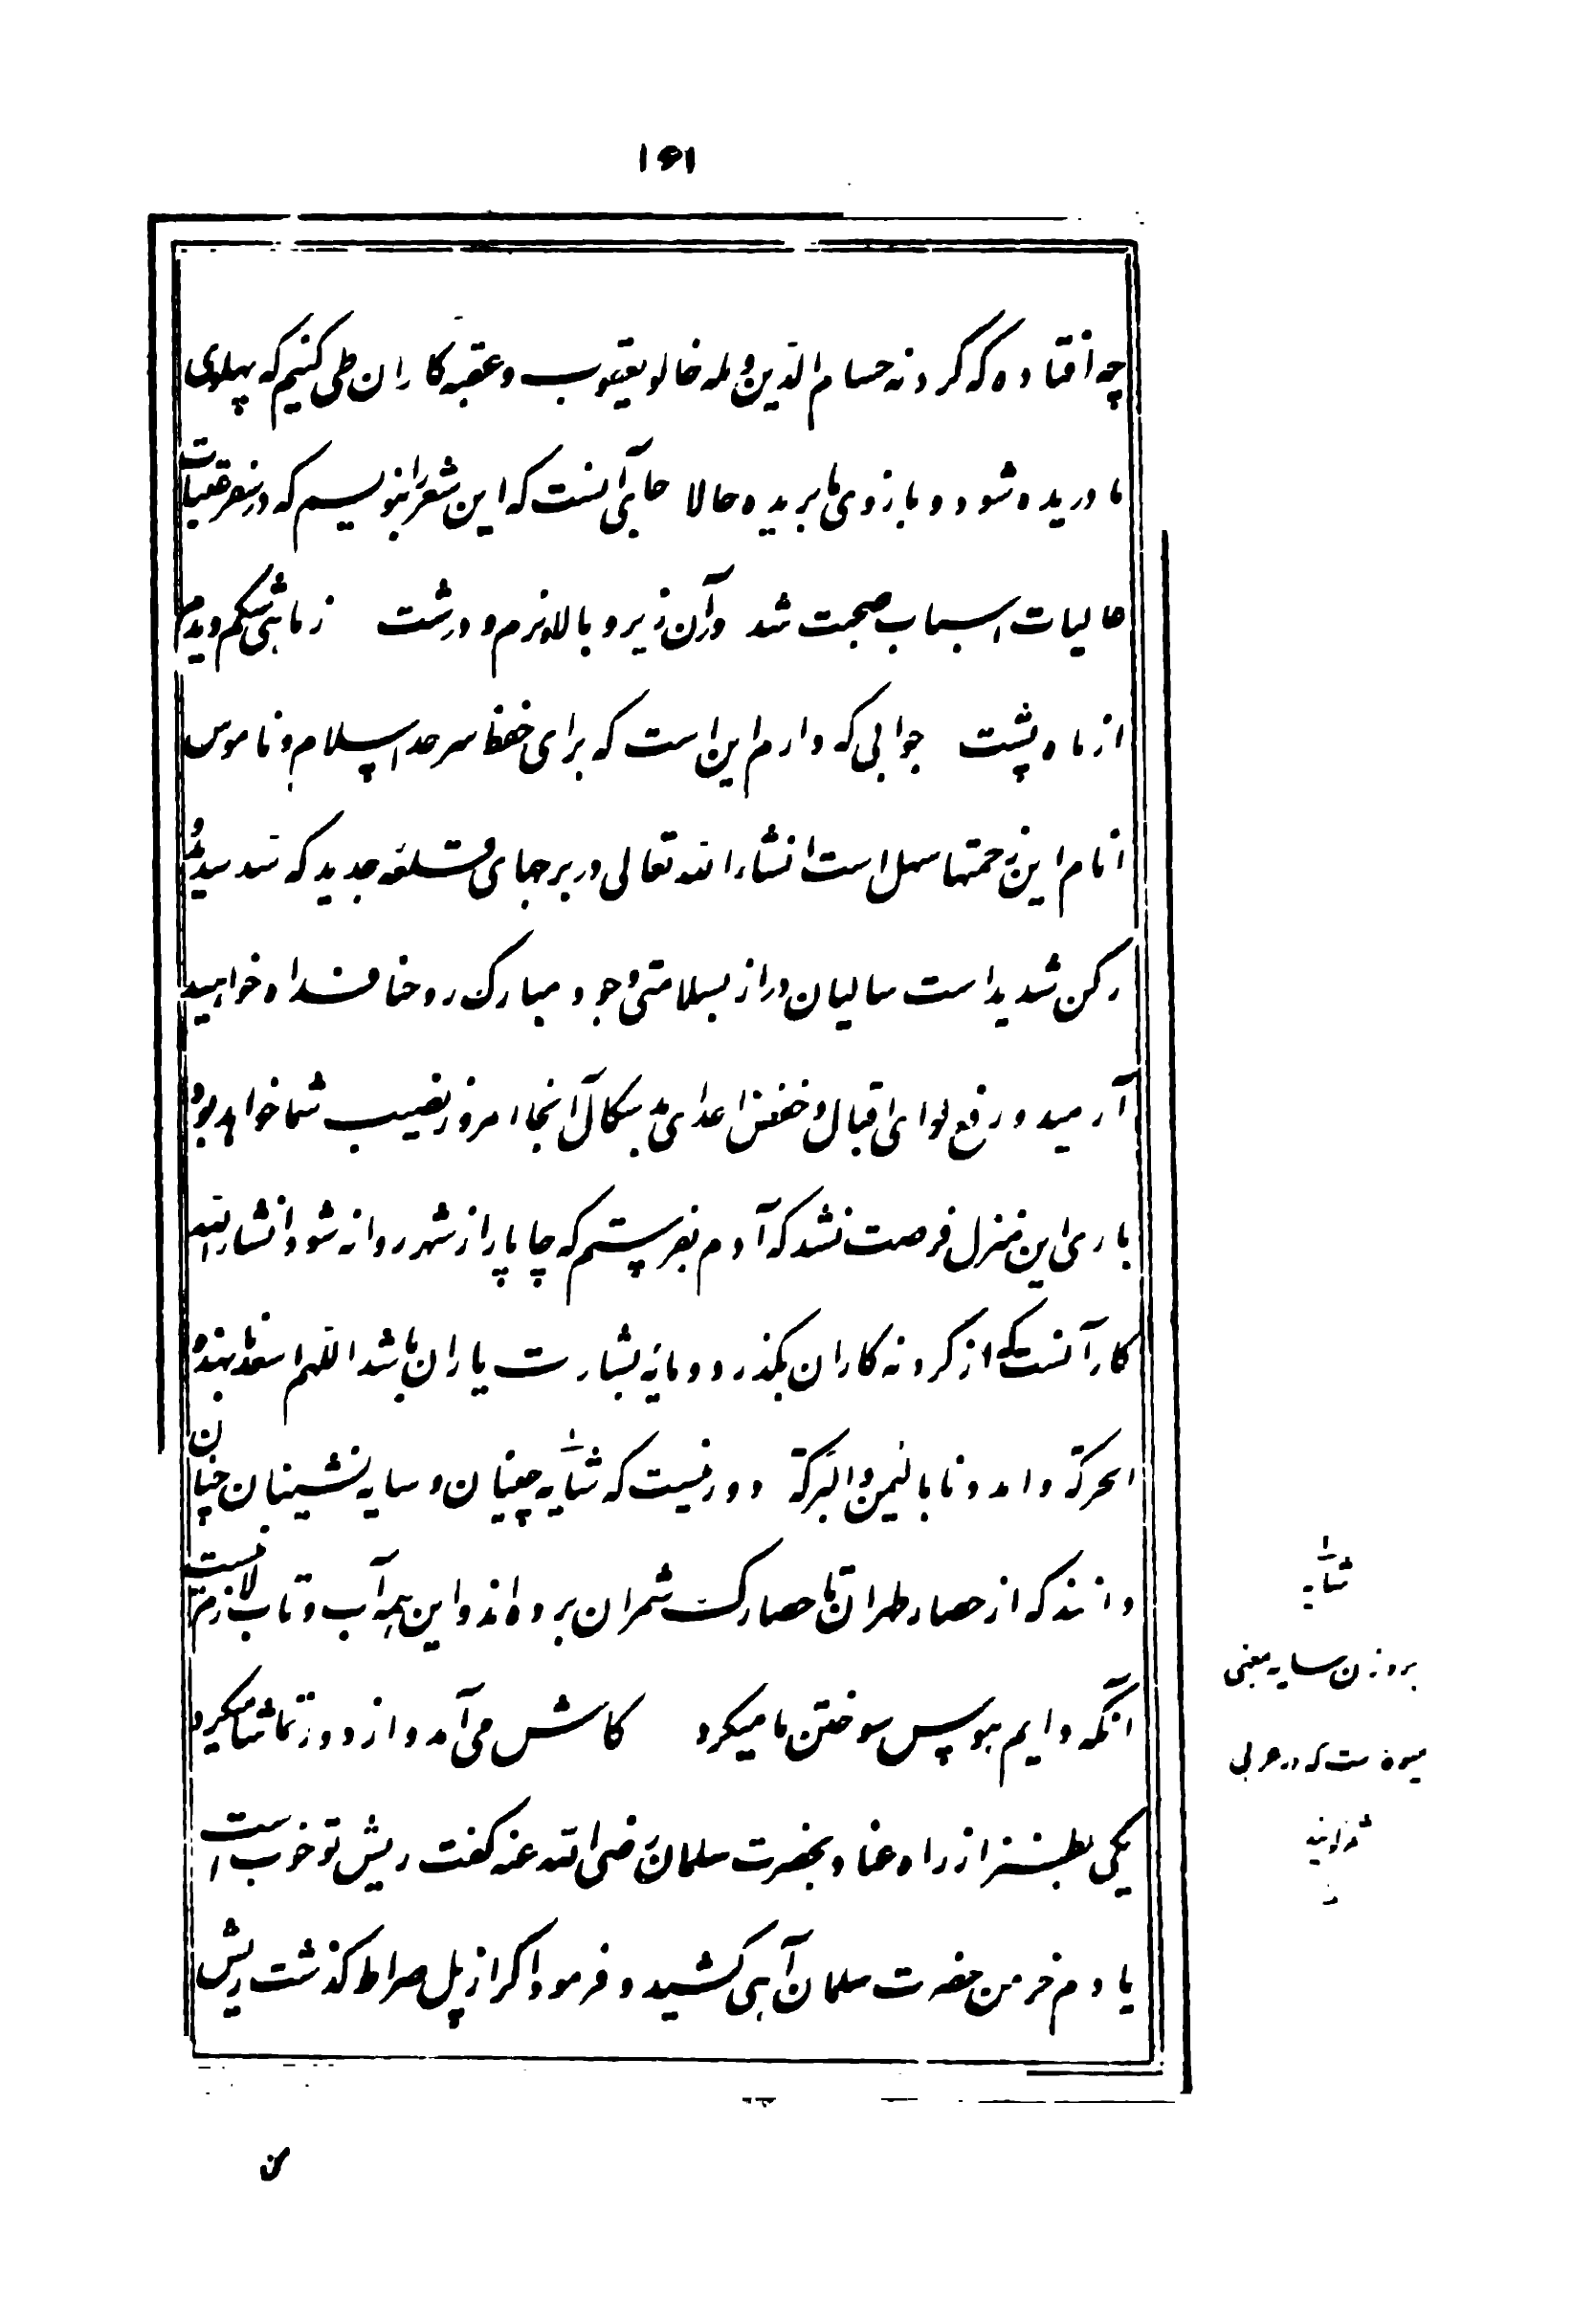 ۱۶۱
چه افتاده که گردنه حسام الدین و مله خالو یعقوب و عقبه کاران طی کنیم که پهلوی
ما دریده شود و بازوی ما بریده حالا جای آنست که این شعر را بنویسم که در شعر عقبات
عالیات اسباب صحبت شد در آن زیر و بالا و نرم و درشت ز ماهی شکم دیدم
از ماه پشت جوابی که دارم این است که برای حفظ سرحد اسلام و ناموس
انام این زحمتها سهل است انشاء الله تعالی در برجهای قلعه جدید که سد سدید و
رکن شدید است سالیان دراز بسلامتی وجود مبارک روحنا فداه خواهید
آرمید و رفع لوای اقبال و خفض اعدای بد سکال آنجا امروز نصیب شما خواهد بود
باری این منزل فرصت نشد که آدم بفرستم که چاپار از شهر روانه شود انشاء الله
کار آنست که از گردنه کاران بگذرد و مایه بشارت یاران باشد اللهم اسعدنا بهذه
الحرکة وامددنا بالیمن و البرکة دور نیست که شآیه چینان و سایه نشینان چنان
دانند که از حصار طهران تا حصارک شمران برده‌اند و این همه آب و تاب لازم نیست
آنکه دایم هوس سوختن ما میکرد کاش می آمد و از دور تماشا میکرد
یکی بطنز از راه عناد بحضرت سلمان رضی الله عنه گفت ریش تو خوب است
یا دم خر من حضرت سلمان آهی کشید و فرمود اگر از پل صراط گذشت ریش
شآیه
بر وزن سایه بمعنی
میوه است که در عربی
من